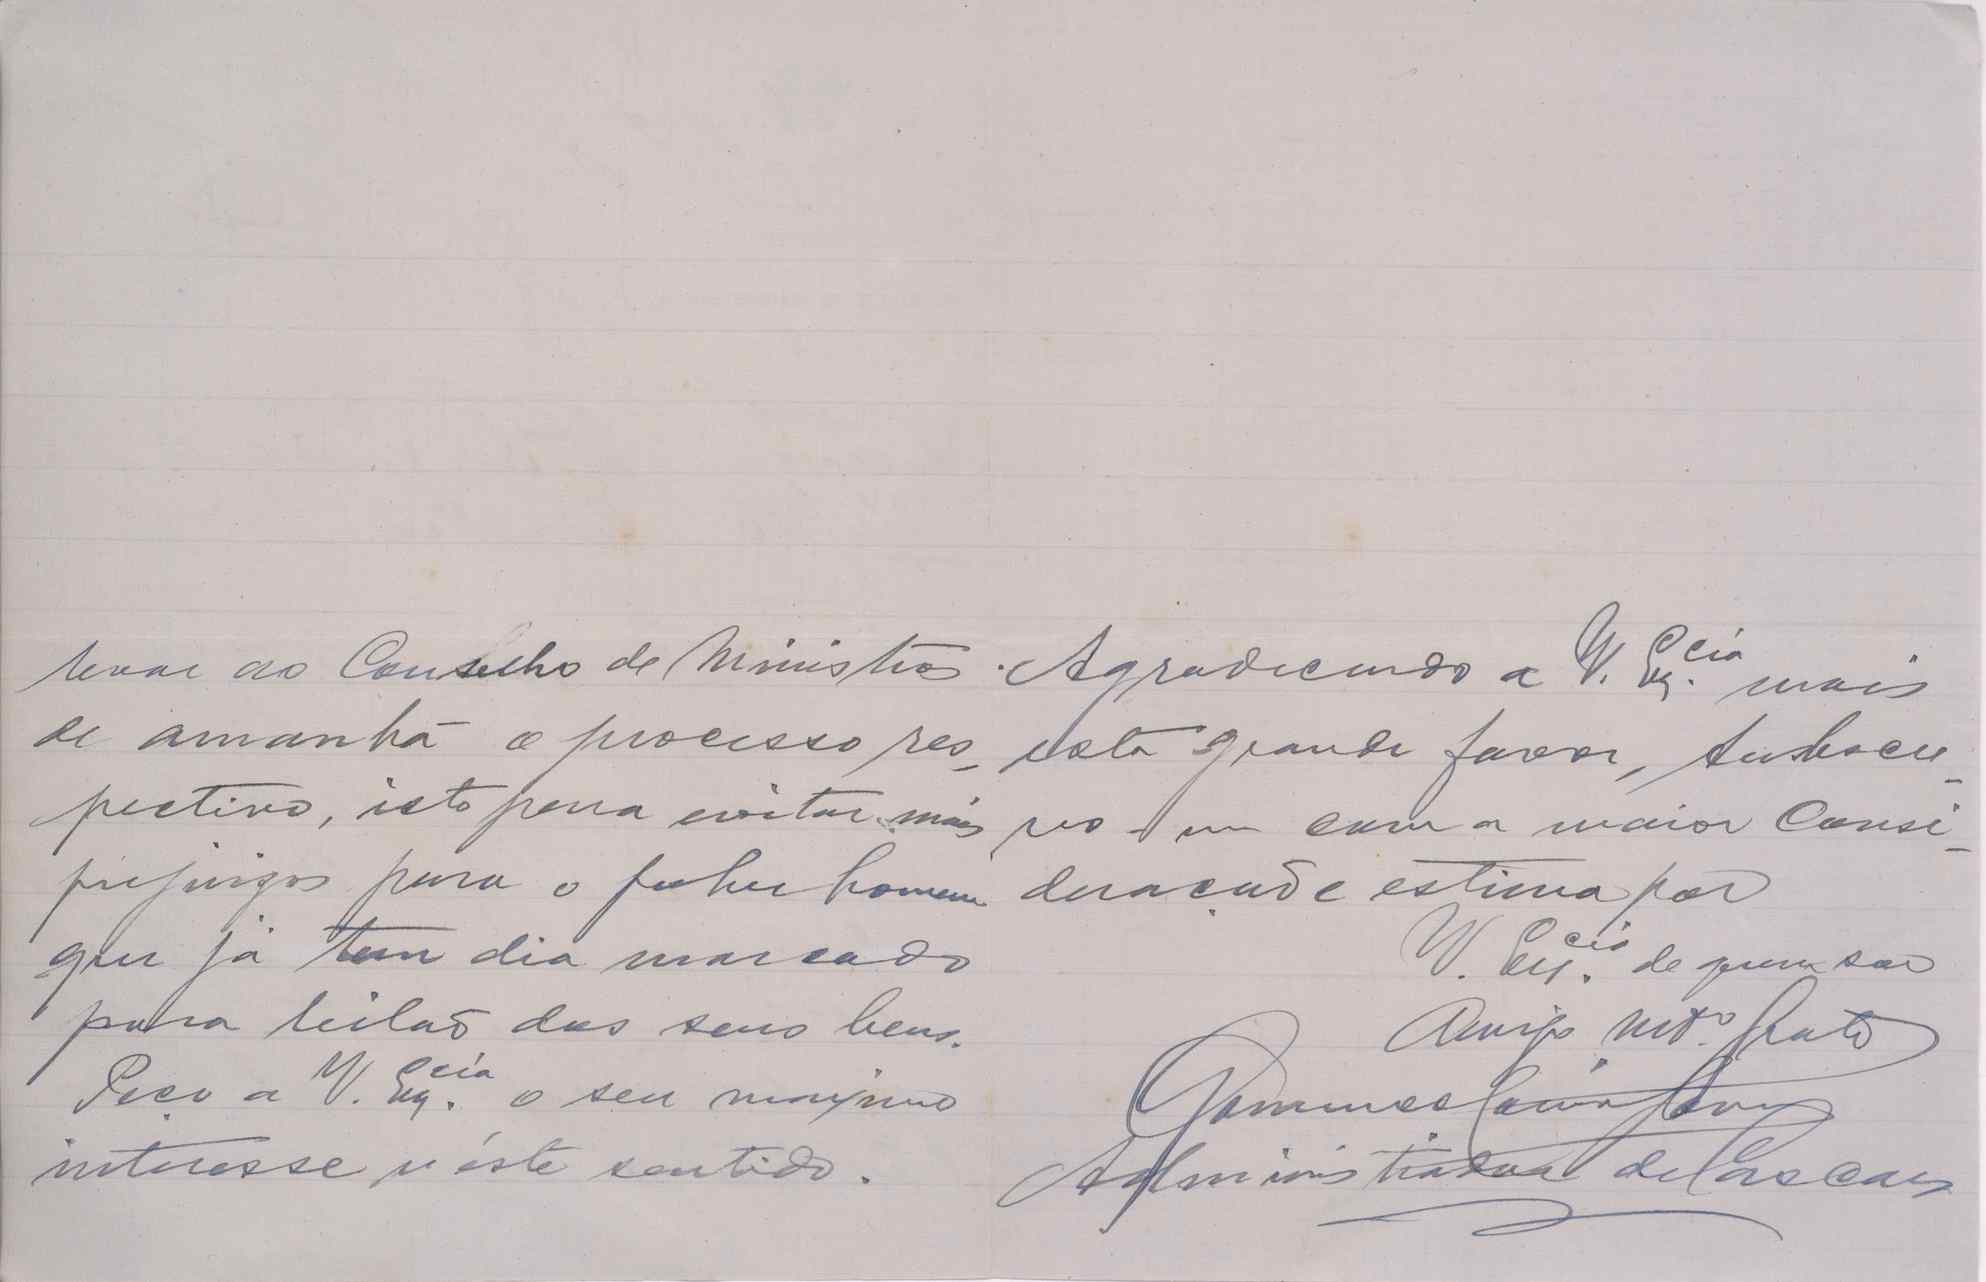 levar ao Conselho de Ministros
de amanhã o processo res-
pectivo, isto para evitar mais
prejuizos para o pobre homem
que já tem dia marcado
para leilão dos seus bens.
Peço a V. Ex.cia o seu maximo
interesse n'éste sentido.
Agradecendo a V. Ex.cia mais
esta grande favor, subscre-
vo-me com a maior consi-
deração e estima por
V. Ex.cia de quem sou
Amigo Mto. Grato
Administrador de Cascaes